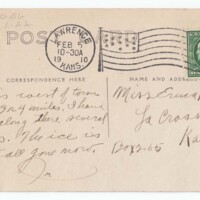 POS
LAWRENCE
FEB 5
10-30A
1910
KANS.
CORRESPONDENCE HERE
NAME AND ADDRESS
is west of town
2 or 4 miles, I have
along there several
The ice is
all gone now.
Miss
La Cross
Kan
Box 265